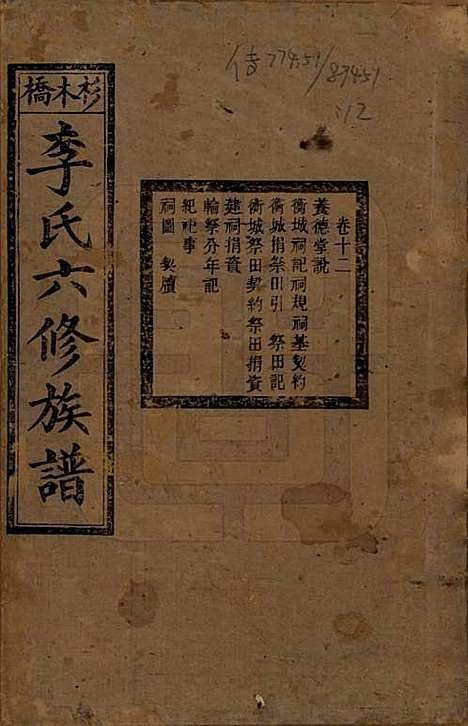 杉木橋
李氏六修族譜
卷十二
養德堂說
衡城祠記祠規祠基契約
衡城捐祭田引 祭田記
衡城祭田契約祭田捐資
建祠捐資
輪祭分年記
紀祀事
祠圖 契牘
傳77451/87451
:12